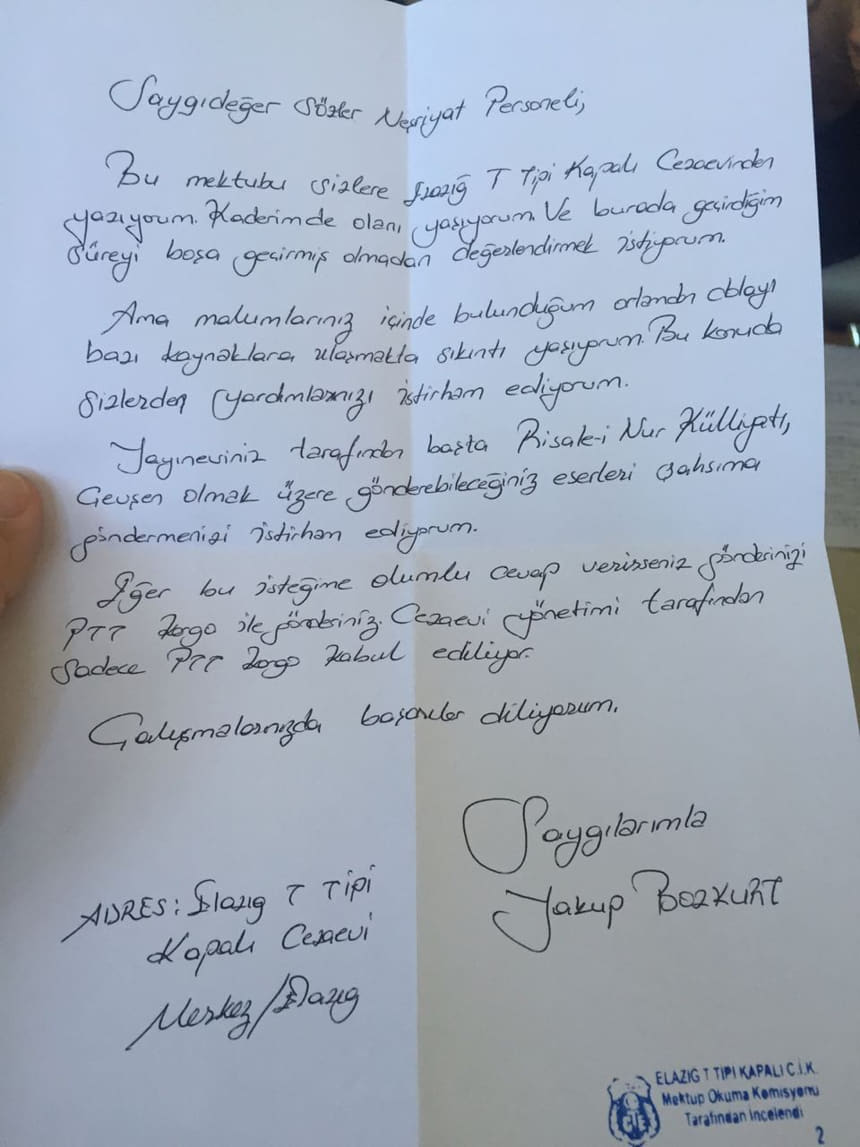 Saygıdeğer Sözler Neşriyat Personeli,
Bu mektubu sizlere Elazığ T Tipi Kapalı Cezaevinden
yazıyorum. Kaderimde olanı yaşıyorum. Ve burada geçirdiğim
süreyi boşa geçirmiş olmadan değerlendirmek istiyorum.
Ama malumlarınız içinde bulunduğum ortamdan dolayı
bazı kaynaklara ulaşmakta sıkıntı yaşıyorum. Bu konuda
sizlerden yardımlarınızı istirham ediyorum.
Yayıneviniz tarafından başta Risale-i Nur Külliyatı,
Cevşen olmak üzere gönderebileceğiniz eserleri şahsıma
göndermenizi istirham ediyorum.
Eğer bu isteğime olumlu cevap verirseniz gönderinizi
PTT kargo ile gönderiniz. Cezaevi yönetimi tarafından
sadece PTT kargo kabul ediliyor.
Çalışmalarınızda başarılar diliyorum.
Saygılarımla
Yakup Bozkurt
ADRES: Elazığ T Tipi
Kapalı Cezaevi
Merkez/Elazığ
ELAZIG T TIPI KAPALI C.İ.K.
Mektup Okuma Komisyonu
Tarafından İncelendi
2